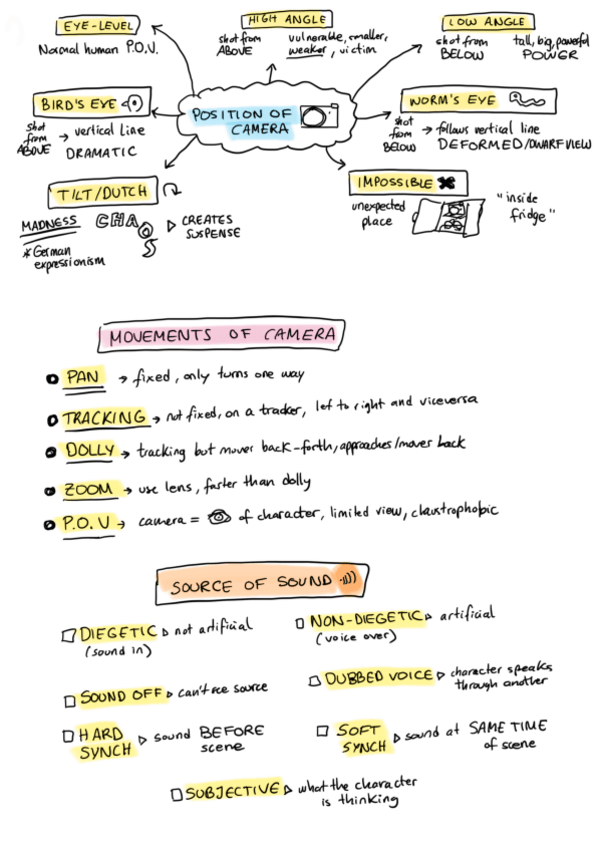 EYE-LEVEL
Normal human P.O.V.
HIGH ANGLE
shot from
ABOVE
vulnerable, smaller,
weaker, victim
LOW ANGLE
shot from
BELOW
tall, big, powerful
POWER
BIRD'S EYE
shot
from
ABOVE
→ vertical line
DRAMATIC
POSITION OF
CAMERA
WORM'S EYE
shot
from
BELOW
→ follows vertical line
DEFORMED/DWARF VIEW
TILT/DUTCH
MADNESS
CHAOS
CREATES
SUSPENSE
*German
expressionism
IMPOSSIBLE
unexpected
place
"inside
fridge"
MOVEMENTS OF CAMERA
PAN → fixed, only turns one way
TRACKING → not fixed, on a tracker, left to right and viceversa
DOLLY → tracking but mover back-forth, approaches/mover back
ZOOM → use lens, faster than dolly
P.O.V → camera = of character, limited view, claustrophobic
SOURCE OF SOUND
DIEGETIC ▷ not artificial
(sound in)
NON-DIEGETIC ▷ artificial
(voice over)
SOUND OFF ▷ can't see source
DUBBED VOICE ▷ character speaks
through another
HARD
SYNCH ▷ sound BEFORE
scene
SOFT
SYNCH ▷ sound at SAME TIME
of scene
SUBJECTIVE ▷ what the character
is thinking